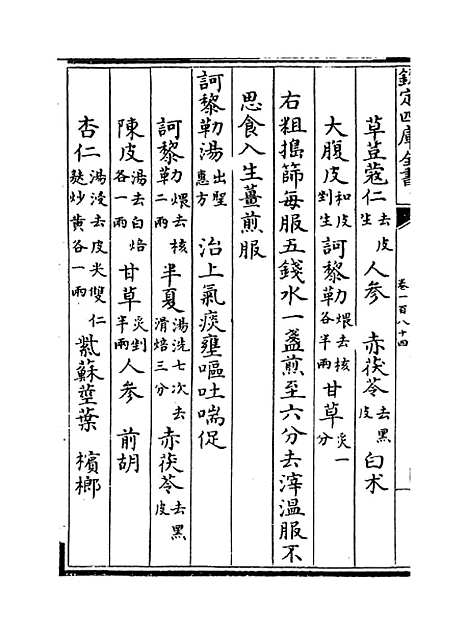 欽定四庫全書
卷一百八十四
草荳蔻仁去皮生 人參 赤茯苓去黑皮 白朮
大腹皮和皮剉生 訶黎勒煨去核各半兩 甘草炙一分
右粗搗篩每服五錢水一盞煎至六分去滓溫服不
思食入生薑煎服
訶黎勒湯出聖惠方 治上氣痰壅嘔吐喘促
訶黎勒煨去核二兩 半夏湯洗七次去滑焙三分 赤茯苓去黑皮
陳皮湯去白焙各一兩 甘草炙剉半兩 人參 前胡
杏仁湯浸去皮尖雙仁麩炒黃各一兩 紫蘇莖葉 檳榔